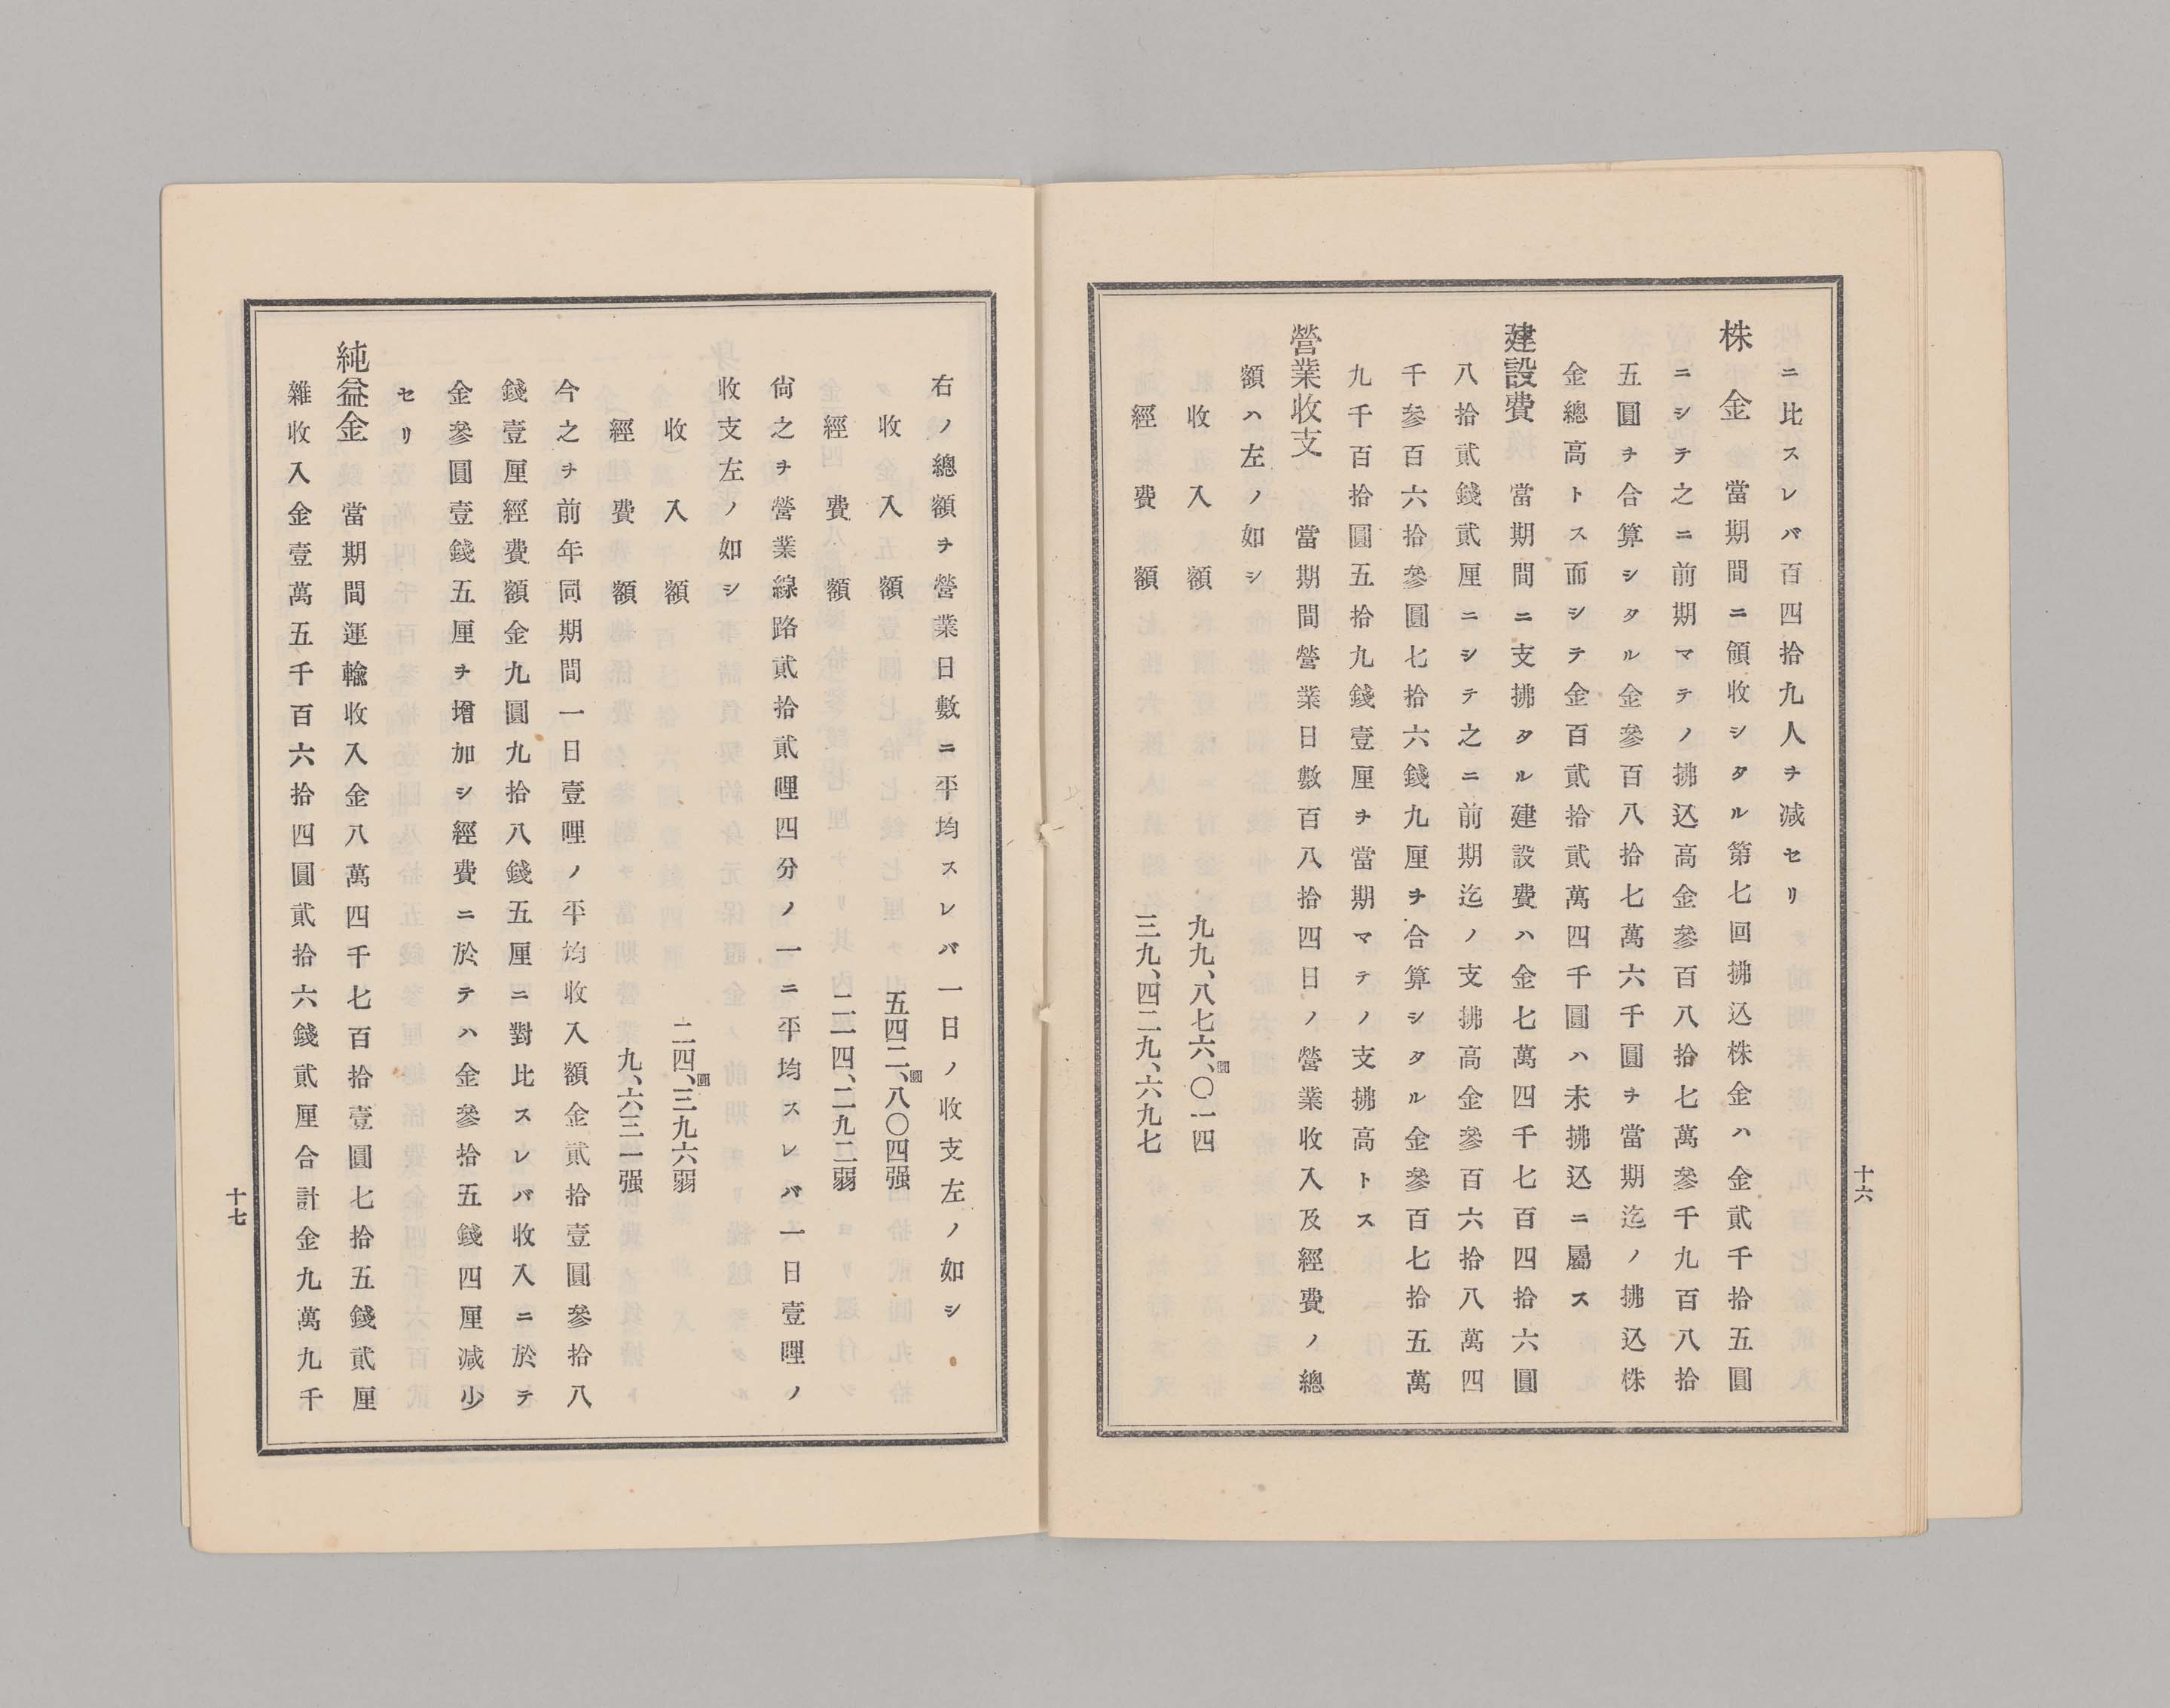 ニ比スレバ百四拾九人ヲ減セリ
株金 當期間ニ領收シタル第七回拂込株金ハ金貳千拾五圓
ニシテ之ニ前期マテノ拂込高金參百八拾七萬參千九百八拾
五圓ヲ合算シタル金參百八拾七萬六千圓ヲ當期迄ノ拂込株
金總高トス而シテ金百貳拾貳萬四千圓ハ未拂込ニ屬ス
建設費 當期間ニ支拂タル建設費ハ金七萬四千七百四拾六圓
八拾貳錢貳厘ニシテ之ニ前期迄ノ支拂高金參百六拾八萬四
千參百六拾參圓七拾六錢九厘ヲ合算シタル金參百七拾五萬
九千百拾圓五拾九錢壹厘ヲ當期マテノ支拂高トス
營業收支 當期間營業日數百八拾四日ノ營業收入及經費ノ總
額ハ左ノ如シ
收入額 九九、八七六、圓〇一四
經費額 三九、四二九、六九七
十六
右ノ總額ヲ營業日數ニ平均スレバ一日ノ收支左ノ如シ
收入額 五四二、圓八〇四强
經費額 二一四、二九二弱
尙之ヲ營業線路貳拾貳哩四分ノ一ニ平均スレバ一日壹哩ノ
收支左ノ如シ
收入額 二四、圓三九六弱
經費額 九、六三一强
今之ヲ前年同期間一日壹哩ノ平均收入額金貳拾壹圓參拾八
錢壹厘經費額金九圓九拾八錢五厘ニ對比スレバ收入ニ於テ
金參圓壹錢五厘ヲ增加シ經費ニ於テハ金參拾五錢四厘減少
セリ
純益金 當期間運輸收入金八萬四千七百拾壹圓七拾五錢貳厘
雜收入金壹萬五千百六拾四圓貳拾六錢貳厘合計金九萬九千
十七